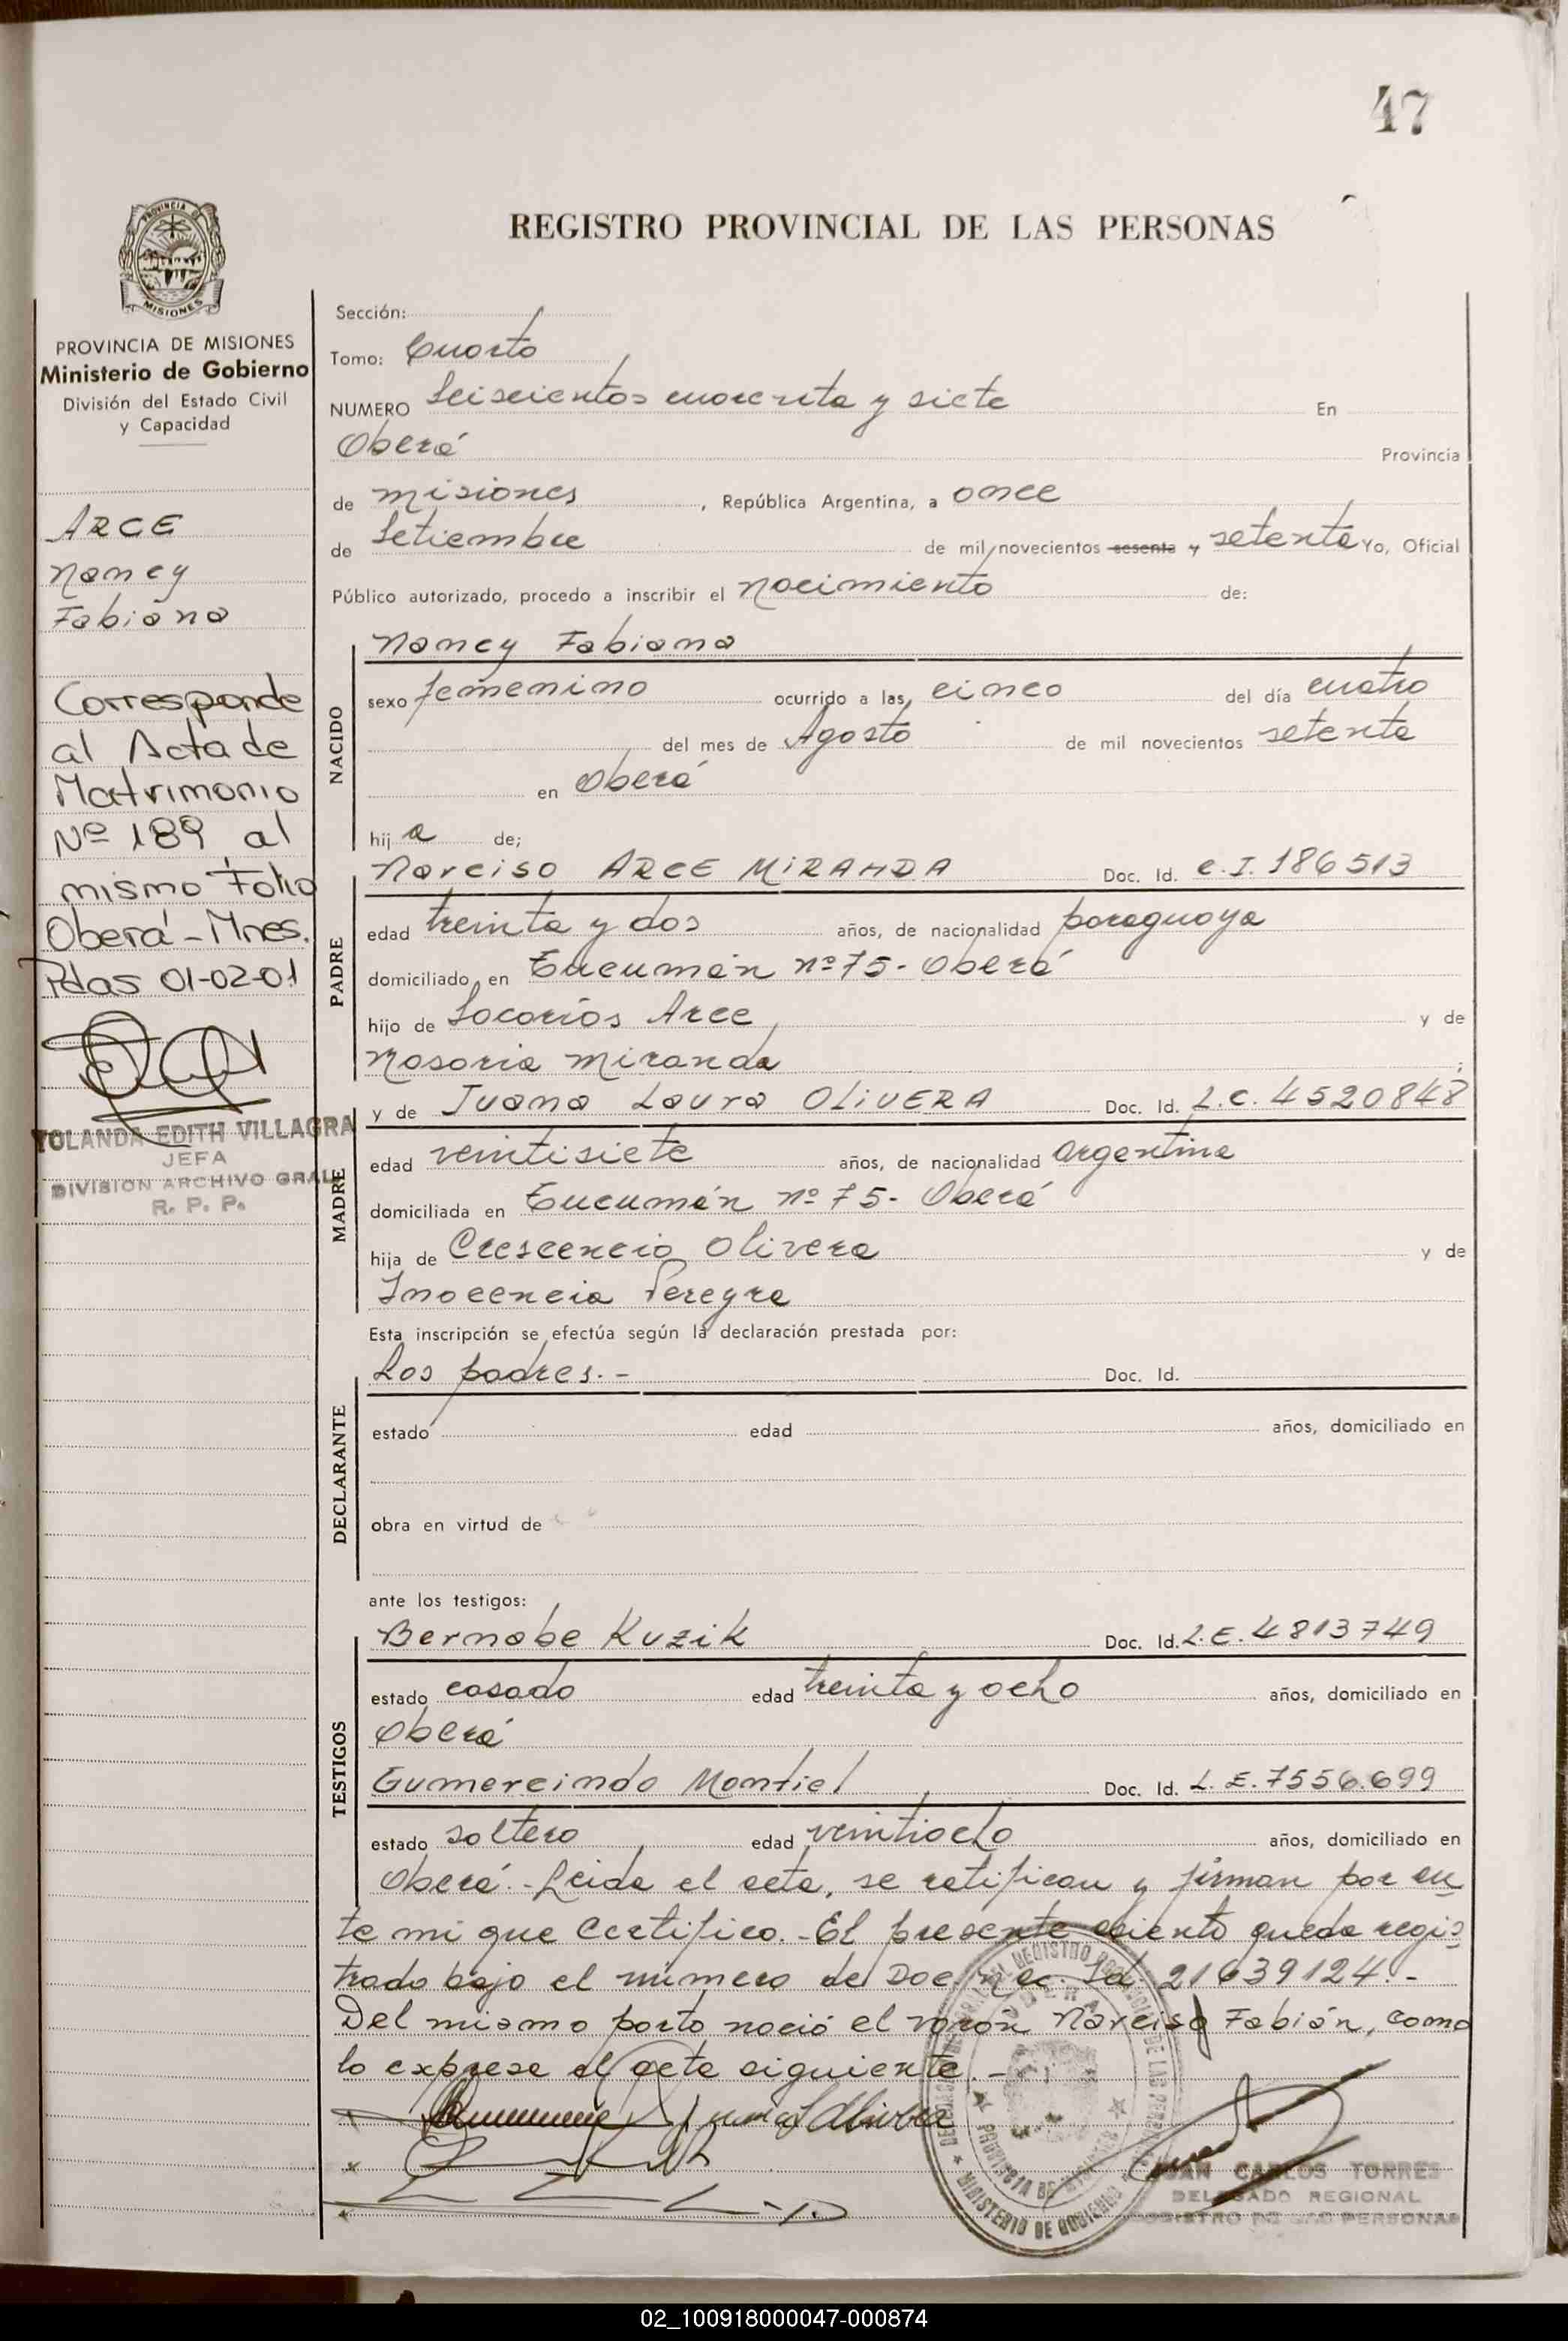 47
REGISTRO PROVINCIAL DE LAS PERSONAS
PROVINCIA DE MISIONES
Ministerio de Gobierno
División del Estado Civil
y Capacidad
ARCE
Nancy
Fabiana
Corresponde
al Acta de
Matrimonio
Nº 189 al
mismo Folio
Oberá - Mnes.
Pdas 01-02-01
YOLANDA EDITH VILLAGRA
JEFA
DIVISION ARCHIVO GRAL
R. P. P.
Sección:
Tomo: Cuarto
NUMERO Seiscientos cuarenta y siete En
Oberá Provincia
de misiones, República Argentina, a once
de Setiembre de mil novecientos sesenta y setenta Yo, Oficial
Público autorizado, procedo a inscribir el nacimiento de:
NACIDO
Nancy Fabiana
sexo femenino ocurrido a las cinco del día cuatro
del mes de Agosto de mil novecientos setenta
en Oberá
hija de;
PADRE
Narciso ARCE MIRANDA Doc. Id. C.I. 186513
edad treinta y dos años, de nacionalidad paraguaya
domiciliado en Tucumán nº 75 - Oberá
hijo de Socorios Arce y de
Nasaria Miranda;
MADRE
y de Juana Laura OLIVERA Doc. Id. L.C. 4520848
edad veintisiete años, de nacionalidad argentina
domiciliada en Tucumán nº 75 - Oberá
hija de Crescencio Olivera y de
Inocencia Pereyra
Esta inscripción se efectúa según la declaración prestada por:
DECLARANTE
Los padres.- Doc. Id.
estado edad años, domiciliado en
obra en virtud de
ante los testigos:
TESTIGOS
Bernabe Kuzik Doc. Id. L.E. 4813749
estado casado edad treinta y ocho años, domiciliado en
Oberá
Gumercindo Montiel Doc. Id. L.E. 7556.699
estado soltero edad veintiocho años, domiciliado en
Oberá.- Leida el acta, se ratifican y firman por an
te mi que Certifico.- El presente asiento queda regis
trado bajo el número de Doc. Nac. Id. 21639124.-
Del mismo parto nació el varón Narciso Fabián, como
lo expresa el acta siguiente.-
JUAN CARLOS TORRES
DELEGADO REGIONAL
REGISTRO DE LAS PERSONAS
MINISTERIO DE GOBIERNO
PROVINCIA DE MISIONES
02_100918000047-000874